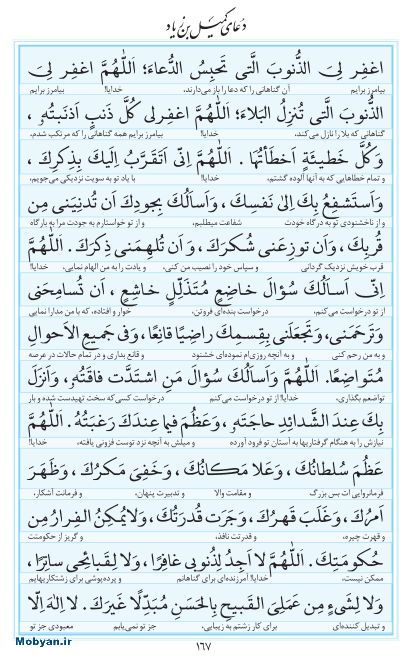 دعای کمیل بن زیاد
اغفِر لِیَ الذُّنوبَ الَّتی تَحبِسُ الدُّعاءَ؛ اَللّٰهُمَّ اغفِر لِیَ
بیامرز برایم آن گناهانی را که دعا را باز می‌دارند، خدایا! بیامرز برایم
الذُّنوبَ الَّتی تُنزِلُ البَلاءَ؛ اَللّٰهُمَّ اغفِرلی کُلَّ ذَنبٍ اَذنَبتُهُ،
گناهانی که بلا را نازل می‌کند، خدایا! بیامرز برایم همه گناهانی را که مرتکب شدم،
وَ کُلَّ خَطیئَةٍ اَخطَأتُها. اَللّٰهُمَّ اِنّی اَتَقَرَّبُ اِلَیكَ بِذِكرِكَ،
و تمام خطاهایی که به آنها آلوده گشتم، خدایا! با یاد تو به سویت نزدیکی می‌جویم،
وَ اَستَشفِعُ بِكَ اِلیٰ نَفسِكَ، وَ اَسأَلُكَ بِجودِكَ اَن تُدنِیَنی مِن
و از ناخشنودی تو به درگاه خودت شفاعت میطلبم، و از تو خواستارم به جودت مرا به بارگاه
قُربِكَ، وَ اَن توزِعَنی شُكرَكَ، وَ اَن تُلهِمَنی ذِكرَكَ. اَللّٰهُمَّ
قرب خویش نزدیک گردانی و سپاس خود را نصیب من کنی، و یادت را به من الهام نمایی، خدایا!
اِنّی اَسأَلُكَ سُؤالَ خاضِعٍ مُتَذَلِّلٍ خاشِعٍ، اَن تُسامِحَنی
از تو درخواست می‌کنم، درخواست بنده‌ای فروتن، خوار و افتاده، که با من مدارا نمایی
وَ تَرحَمَنی، وَ تَجعَلَنی بِقِسمِكَ راضِیًا قانِعًا، وَ فی جَمیعِ الاَحوالِ
و به من رحم کنی و به آنچه روزی‌ام نموده‌ای خشنود و قانع بداری و در تمام حالات در عرصه
مُتَواضِعًا. اَللّٰهُمَّ وَ اَسأَلُكَ سُؤالَ مَنِ اشتَدَّت فاقَتُهُ، وَ اَنزَلَ
تواضعم بگذاری، خدایا! از تو درخواست می‌کنم درخواست کسی‌که سخت تهیدست شده و بار
بِكَ عِندَ الشَّدائِدِ حاجَتَهُ، وَ عَظُمَ فیما عِندَكَ رَغبَتُهُ. اَللّٰهُمَّ
نیازش را به هنگام گرفتاریها به آستان تو فرود آورده و میلش به آنچه نزد توست فزونی یافته، خدایا!
عَظُمَ سُلطانُكَ، وَ عَلا مَكانُكَ، وَ خَفِیَ مَكرُكَ، وَ ظَهَرَ
فرمانروایی ات بس بزرگ و مقامت والا و تدبیرت پنهان، و فرمانت آشکار،
اَمرُكَ، وَ غَلَبَ قَهرُكَ، وَ جَرَت قُدرَتُكَ، وَ لا یُمكِنُ الفِرارُ مِن
و قهرت چیره، و قدرتت نافذ، و گریز از حکومتت
حُكومَتِكَ. اَللّٰهُمَّ لا اَجِدُ لِذُنوبی غافِرًا، وَ لا لِقَبائِحی ساتِرًا،
ممکن نیست، خدایا! آمرزنده‌ای برای گناهانم و پرده‌پوشی برای زشتکاریهایم
وَ لا لِشَیءٍ مِن عَمَلِیَ القَبیحِ بِالحَسَنِ مُبَدِّلًا غَیرَكَ. لا اِلٰهَ اِلّا
و تبدیل کننده‌ای برای کار زشتم به زیبایی، جز تو نمی‌یابم معبودی جز تو
۱۶۷
Mobyan.ir